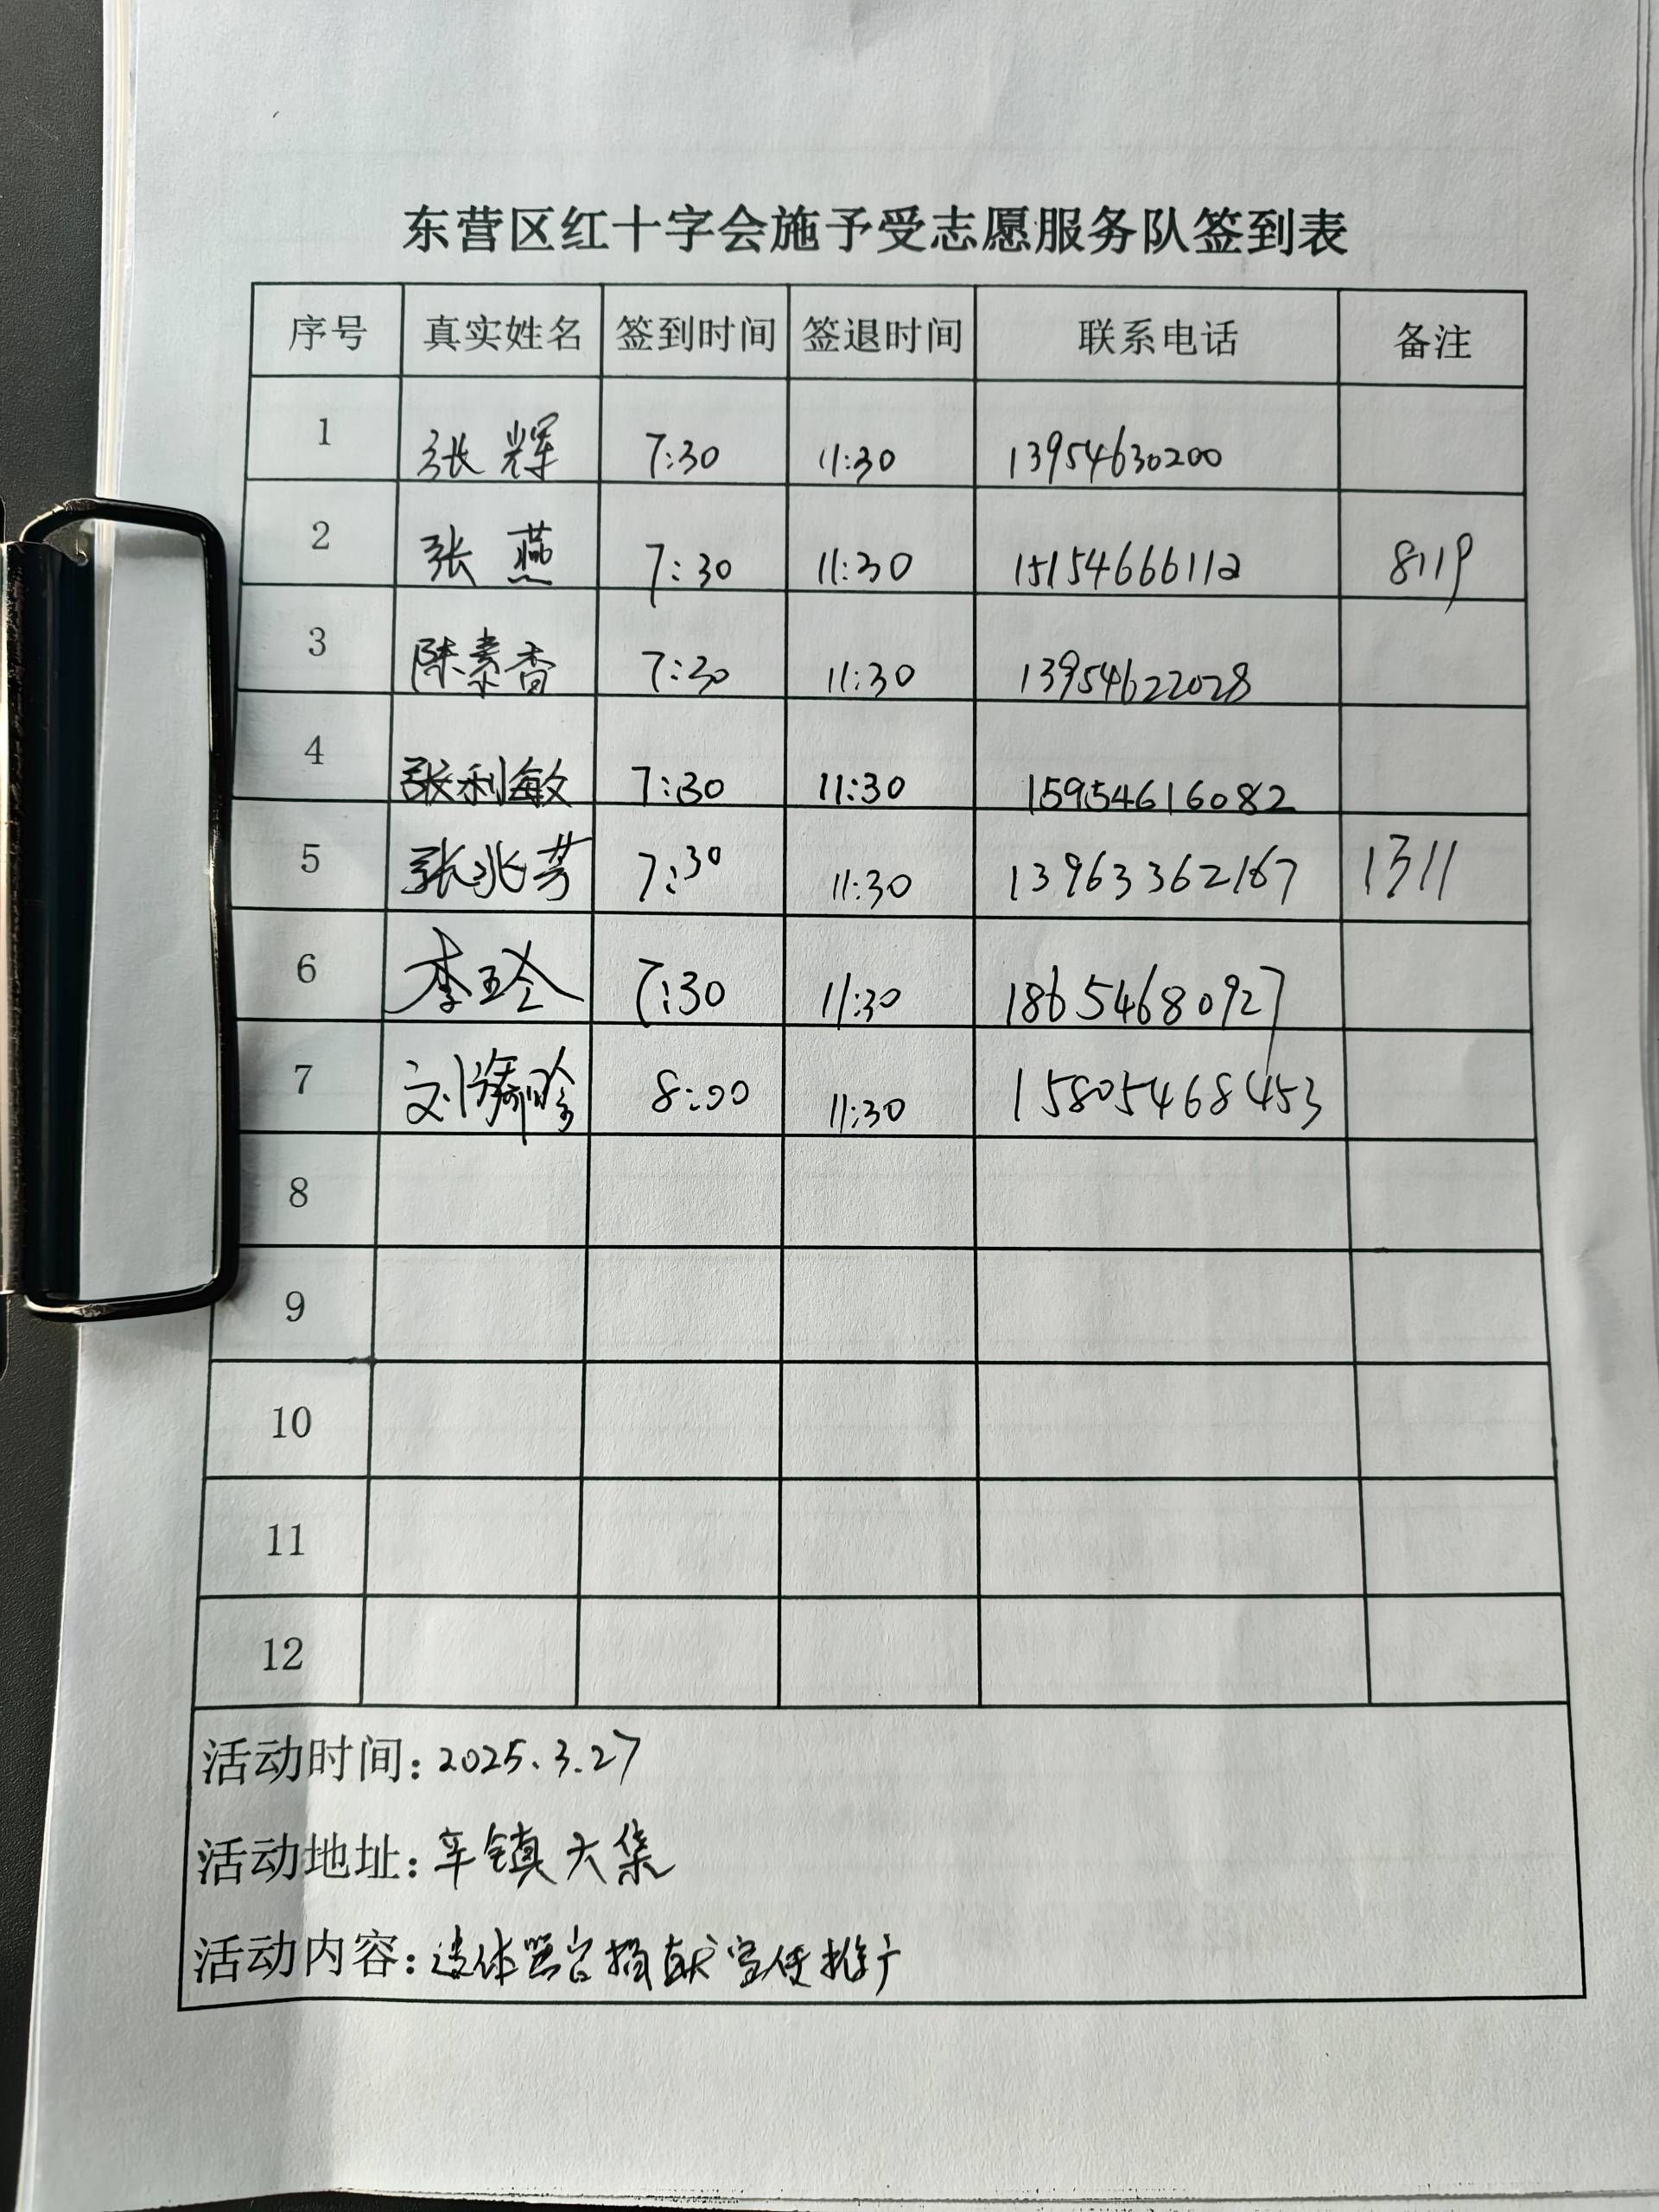 东营区红十字会施予受志愿服务队签到表
序号 真实姓名 签到时间 签退时间 联系电话 备注
1 张辉 7:30 11:30 13954630200
2 张燕 7:30 11:30 15154666112 8119
3 陈素香 7:30 11:30 13954622028
4 张利敏 7:30 11:30 15954616082
5 张兆芳 7:30 11:30 13963362167 1311
6 李玉圣 7:30 11:30 18654680927
7 刘 8:00 11:30 15805468453
8
9
10
11
12
活动时间：2025.3.27
活动地址：车镇大集
活动内容：遗体器官捐献宣传推广